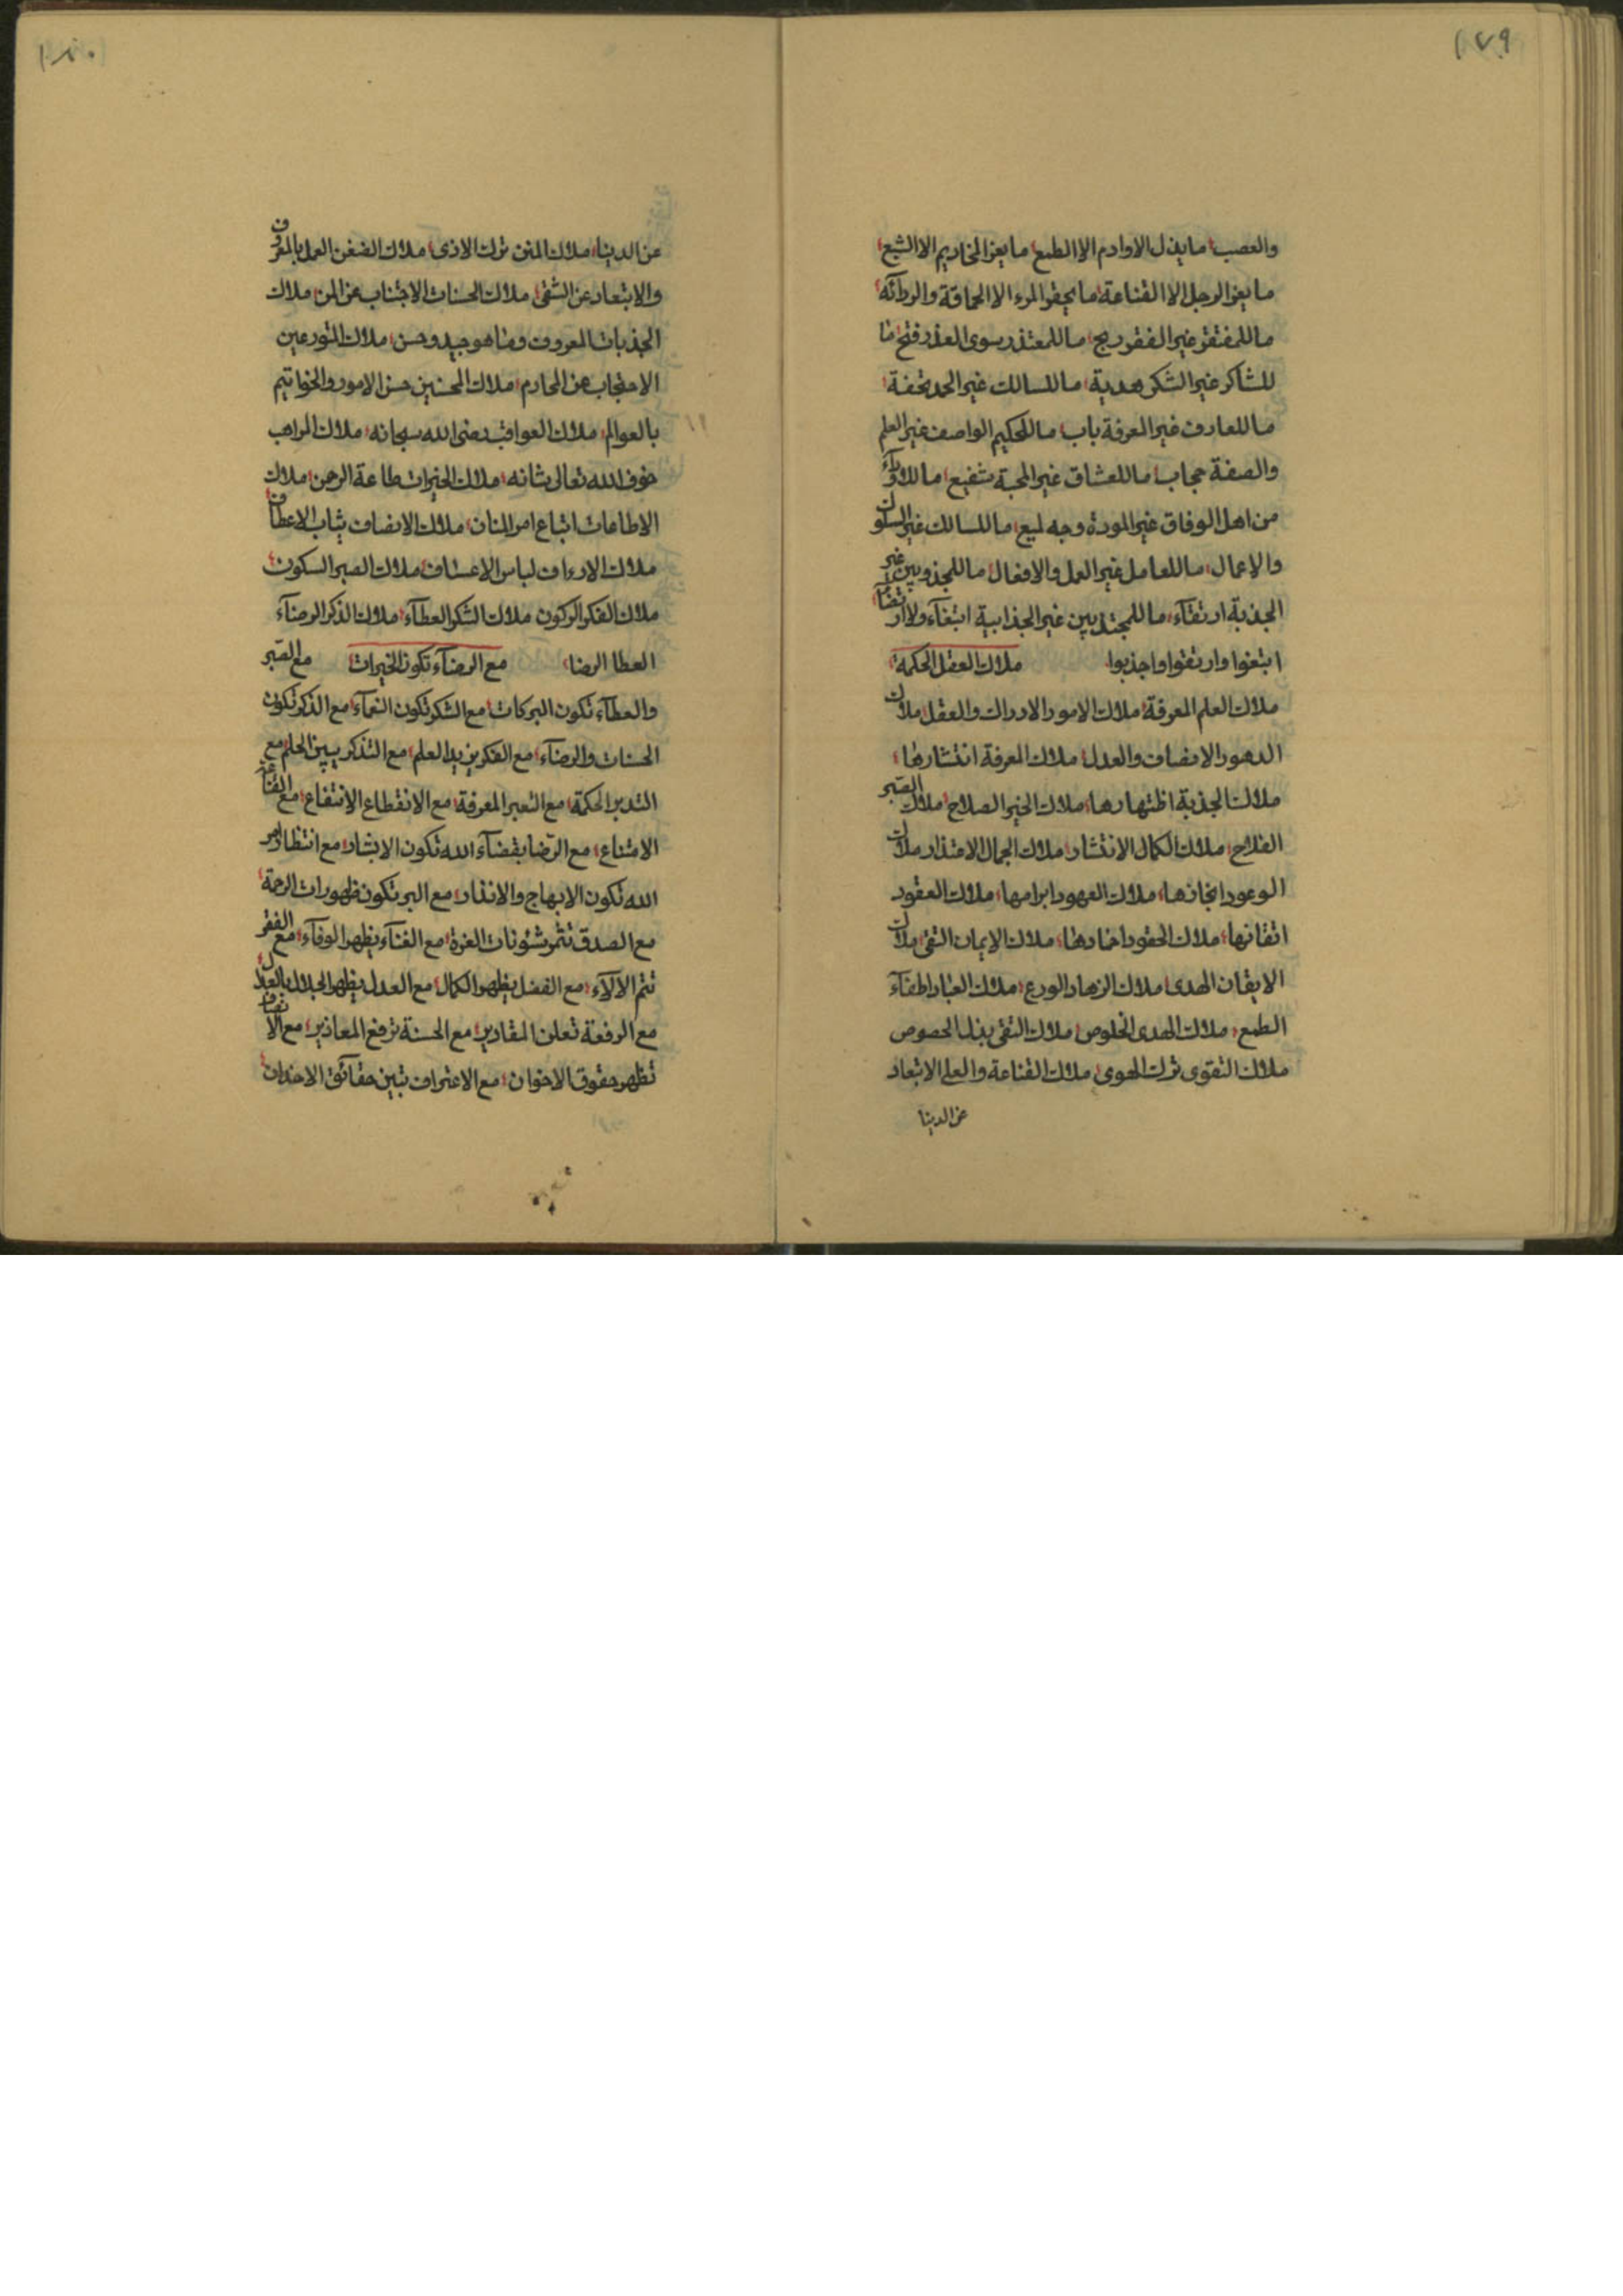 ١٧٩
والعصب ما يذل الاوادم الا الطمع ما يعز المخاديم الا الشبع
ما يعز الرجل الا القناعة ما يحقر المرء الا الحماقة والردائة
ما للمفتقر غير الفقر ربح ما للمعتذر سوى العذر فتح ما
للشاكر غير الشكر هدية ما للسالك غير الحمد تحفة
ما للعارف غير المعرفة باب ما للحكيم الواصف غير العلم
والصفة حجاب ما للعشاق غير المحبة شفيع ما للاودآء
من اهل الوفاق غير المودة وجه لميع ما للسالك غير السلوك
والاعمال ما للعامل غير العمل والافعال ما للمجذوبين غير
الجذبة ارتقآء ما للمجتذبين غير الجذابية ابتغآء ولا ارتضآء
ابتغوا وارتقوا واجذبوا ملاك العقل الحكمة
ملاك العلم المعرفة ملاك الامور الادراك والعقل ملاك
الدهور الانصاف والعدل ملاك المعرفة انتشارها
ملاك الجذبة اظتهارها ملاك الخير الصلاح ملاك الصبر
الفلاح ملاك الكمال الانتشار ملاك الجمال الاعتذار ملاك
الوعود انجازها ملاك العهود ابرامها ملاك العقود
اتقانها ملاك الحقود اخمادها ملاك الايمان التقى ملاك
الايقان الهدى ملاك الزهاد الورع ملاك العباد اطفآء
الطمع ملاك الهدى الخلوص ملاك التقى بذل الحصوص
ملاك التقوى ترك الهوى ملاك القناعة والعلم الابتعاد
عن الدينا
١٨٠
عن الدينا ملاك المنن ترك الاذى ملاك الضغن العمل بالمعروف
والابتعاد عن الشقى ملاك الحسنات الاجتناب عن المن ملاك
الجذبات المعروف وما هو جيد وحسن ملاك المتورعين
الاحتجاب عن المحارم ملاك المحسنين حسن الامور والخواتيم
بالعوالم ملاك العواقب رضى الله سبحانه ملاك المراهب
خوف الله تعالى شانه ملاك الخيرات طاعة الرحمن ملاك
الاطاعات اتباع امر المنان ملاك الانصاف ثياب الاعطاف
ملاك الارداف لباس الاعساف ملاك الصبر السكون
ملاك الفكر الركون ملاك الشكر العطآء ملاك الذكر الرضآء
العطا الرضا مع الرضآء تكون الخيرات مع الصبر
والعطآء تكون البركات مع الشكر تكون النعمآء مع الذكر تكون
الحسنات والرضآء مع الفكر يزيد العلم مع التذكر يبين الحلم مع
التدبر الحكمة مع التعبر المعرفة مع الانقطاع الانتفاع مع القناعة
الامتناع مع الرضا بقضآء الله تكون الابشار مع انتظار امر
الله تكون الابهاج والانذار مع البر تكون ظهورات الرحمة
مع الصدق تثمر شئونات العزة مع الغنآء يظهر الوفآء مع الفقر
تتم الالآء مع الفضل يظهر الكمال مع العدل يظهر الجلال بالعدل
مع الرفعة تعلن المقادير مع الحسنة ترفع المعاذير مع الانصاف
تظهر حقوق الاخوان مع الاعتراف تبين حقائق الاخدان